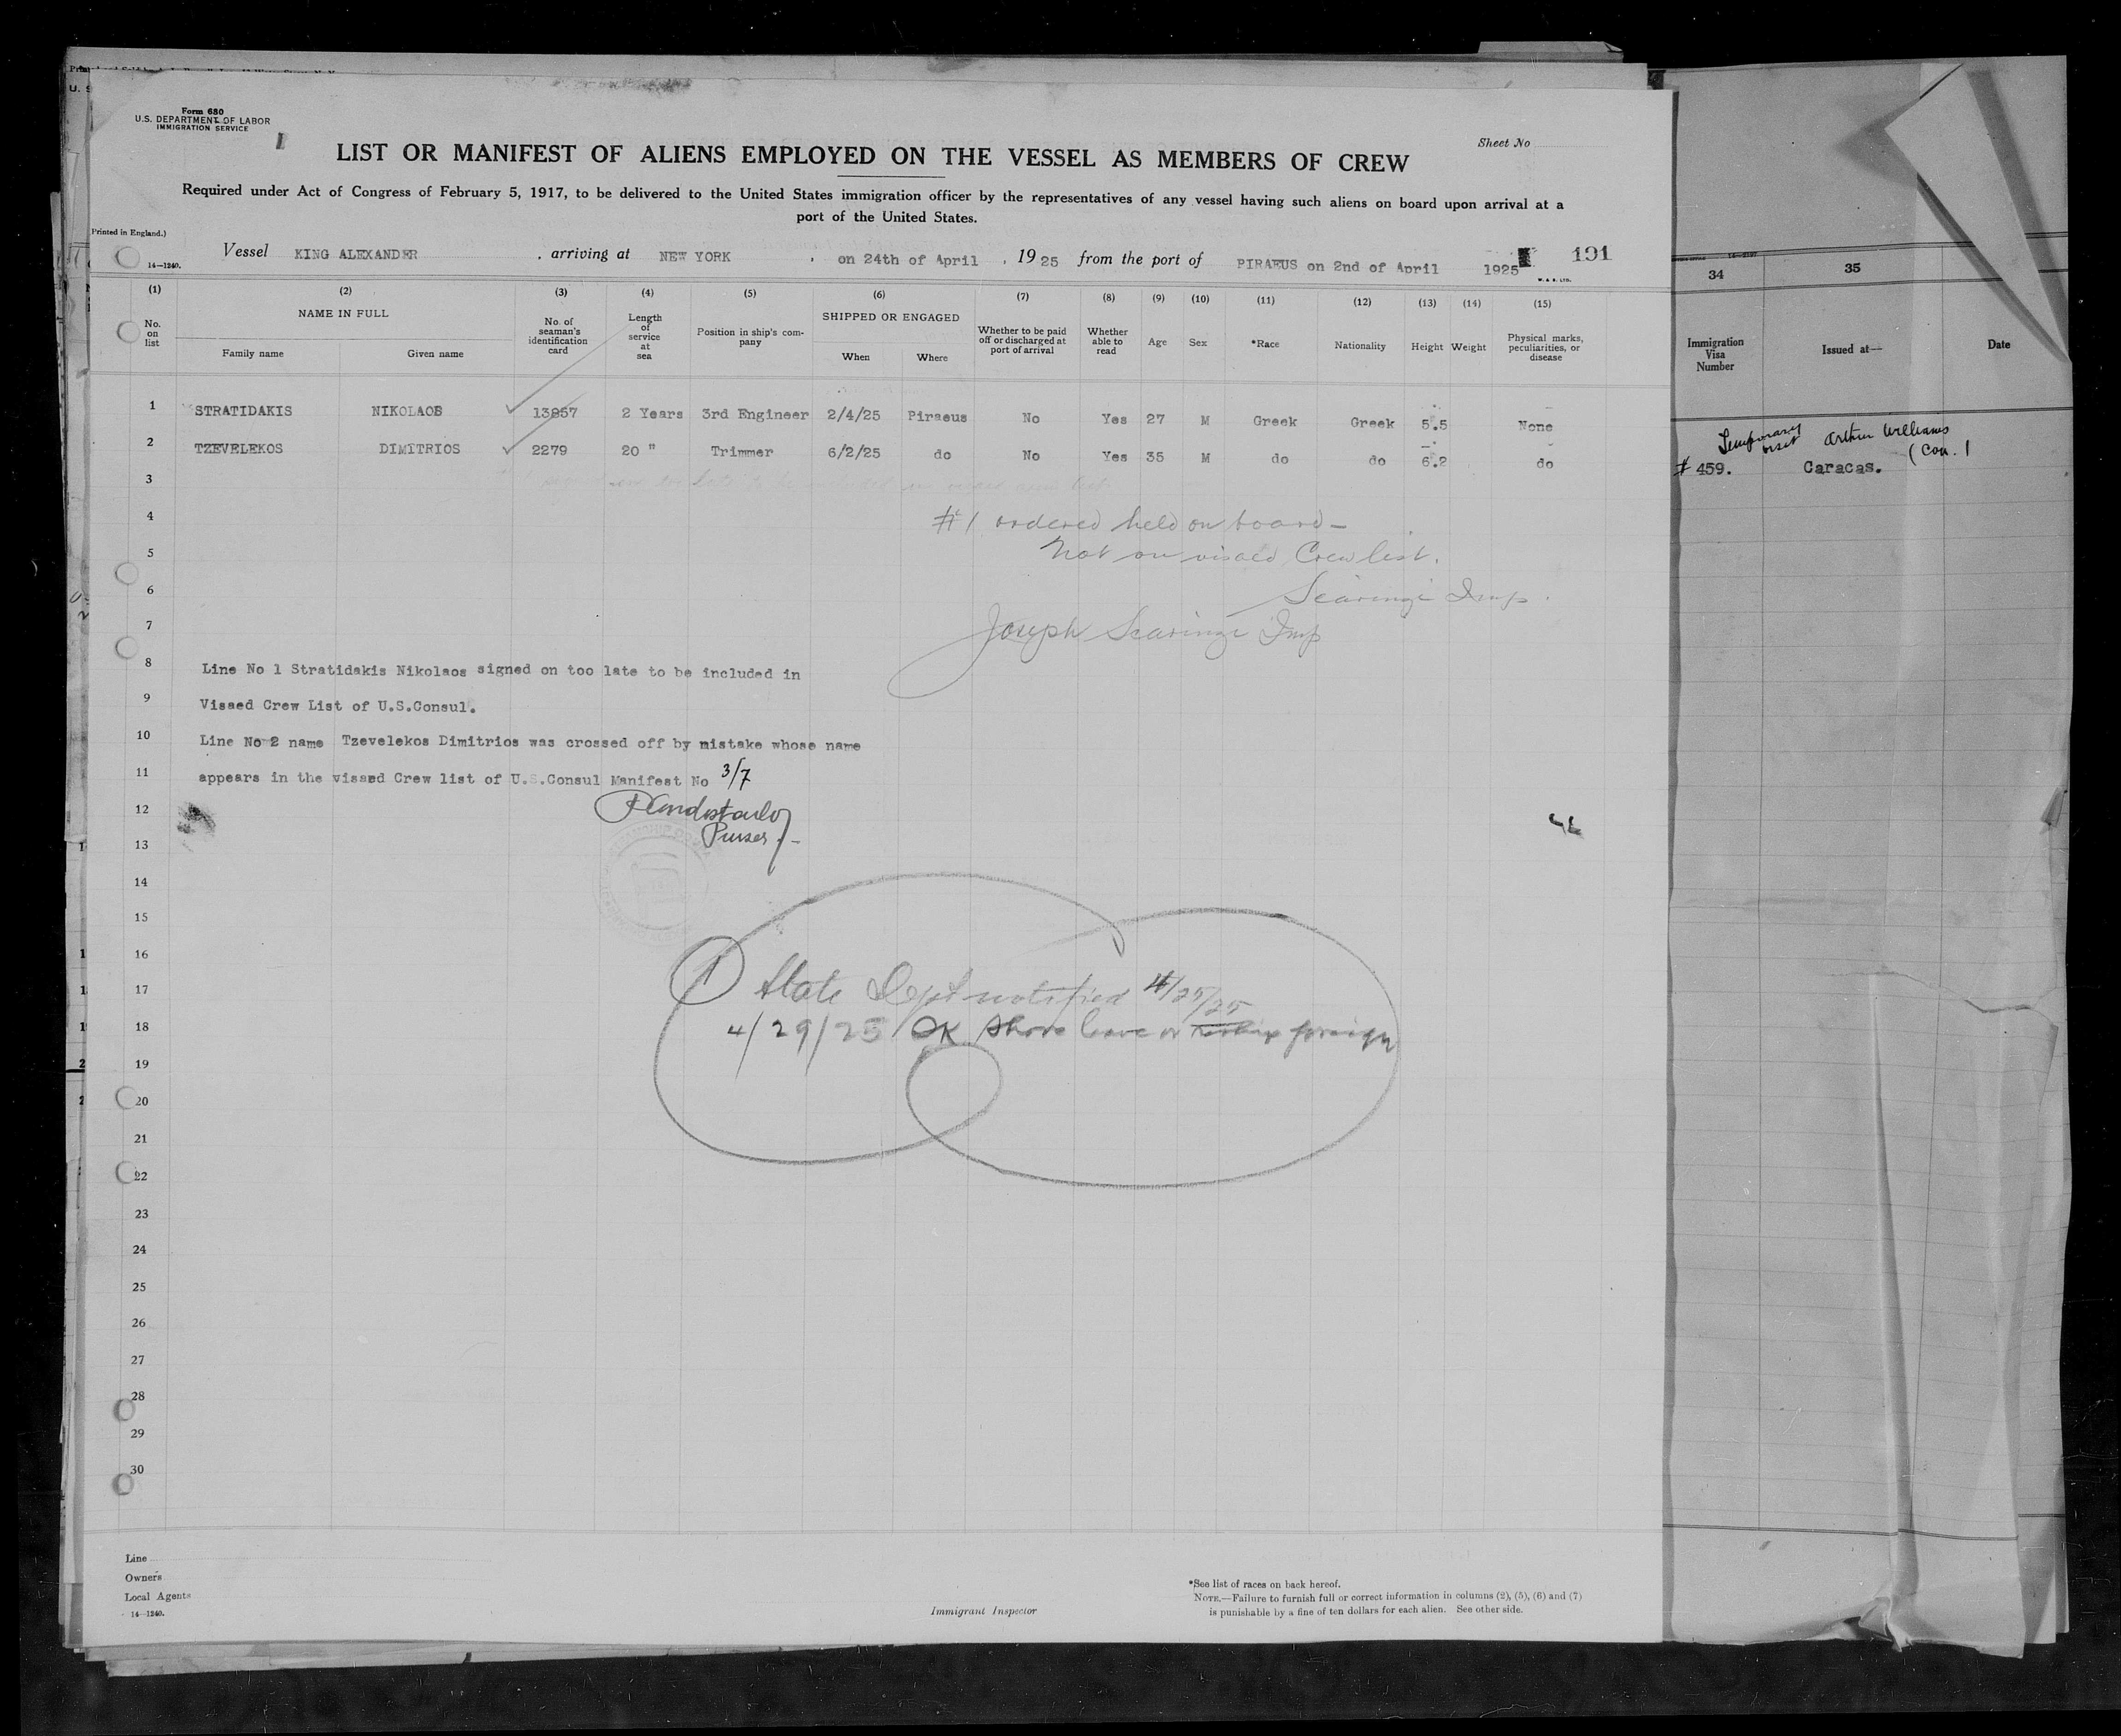 Form 680
U.S. DEPARTMENT OF LABOR
IMMIGRATION SERVICE
Sheet No
LIST OR MANIFEST OF ALIENS EMPLOYED ON THE VESSEL AS MEMBERS OF CREW
Required under Act of Congress of February 5, 1917, to be delivered to the United States immigration officer by the representatives of any vessel having such aliens on board upon arrival at a
port of the United States.
Printed in England.)
14—1240.
Vessel KING ALEXANDER, arriving at NEW YORK, on 24th of April, 1925 from the port of PIRAEUS on 2nd of April 1925 191
W. & S. LTD.
(1) (2) (3) (4) (5) (6) (7) (8) (9) (10) (11) (12) (13) (14) (15)
No. on list NAME IN FULL No. of seaman's identification card Length of service at sea Position in ship's company SHIPPED OR ENGAGED Whether to be paid off or discharged at port of arrival Whether able to read Age Sex *Race Nationality Height Weight Physical marks, peculiarities, or disease
Family name Given name When Where
34 35
Immigration Visa Number Issued at— Date
1 STRATIDAKIS NIKOLAOS 13857 2 Years 3rd Engineer 2/4/25 Piraeus No Yes 27 M Greek Greek 5.5 None
2 TZEVELEKOS DIMITRIOS 2279 20 " Trimmer 6/2/25 do No Yes 35 M do do 6.2 do
Temporary visit Arthur Williams
(Con.
# 459. Caracas.
3
4 #1 ordered held on board—
5 Not on visaed Crew list.
6 Scaringi Imp.
7 Joseph Scaringi Imp
8 Line No 1 Stratidakis Nikolaos signed on too late to be included in
9 Visaed Crew List of U.S.Consul.
10 Line No 2 name Tzevelekos Dimitrios was crossed off by mistake whose name
11 appears in the vissed Crew list of U.S.Consul Manifest No 3/7
12
Purser
13
14
15
16
17 1 State Dept notified 4/25/25
18 4/29/25 OK Shore leave or foreign
19
20
21
22
23
24
25
26
27
28
29
30
Line
Owners
Local Agents
14—1240.
Immigrant Inspector
*See list of races on back hereof.
NOTE.—Failure to furnish full or correct information in columns (2), (5), (6) and (7)
is punishable by a fine of ten dollars for each alien. See other side.